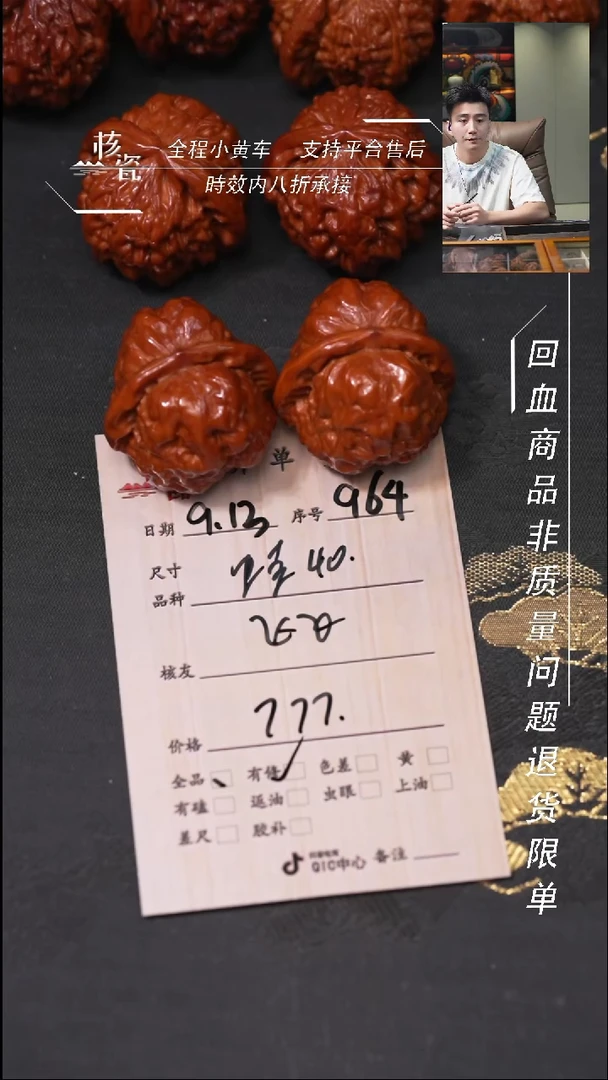 核瓷
全程小黄车 支持平台售后
時效内八折承接
回血商品非质量问题退货限单
单
日期 9.13 序号 964
尺寸
品种 40.
核友
价格 777.
全品 有修 色差 黄
有磕 返油 虫眼 上油
差尺 胶补
抖音电商
QIC中心 备注